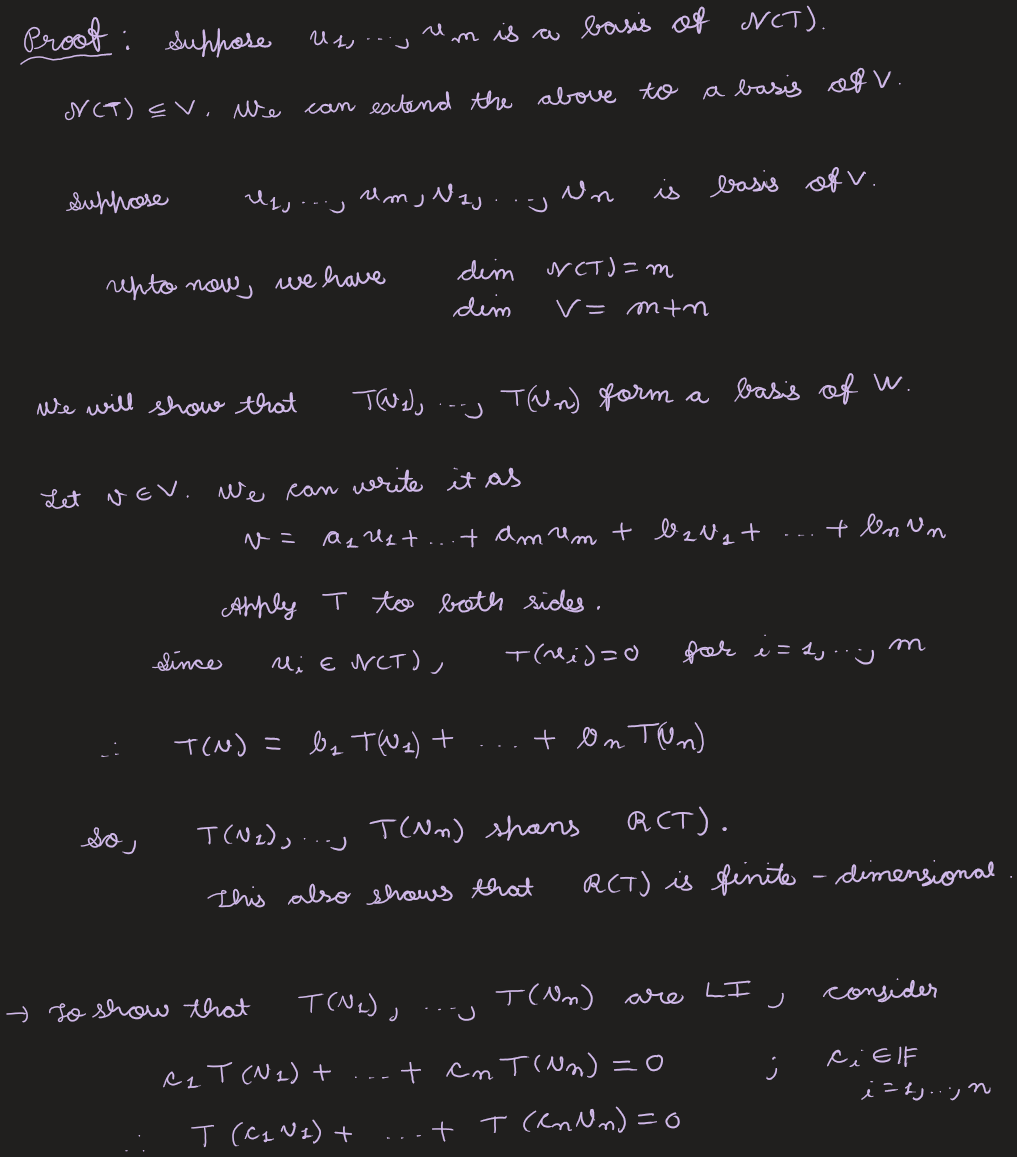 Proof : Suppose u₁, ..., uₘ is a basis of N(T).
N(T) ≤ V. We can extend the above to a basis of V.
Suppose u₁, ..., uₘ, v₁, ..., vₙ is basis of V.
Upto now, we have dim N(T) = m
dim V = m+n
We will show that T(v₁), ..., T(vₙ) form a basis of W.
Let v ∈ V. We can write it as
v = a₁u₁ + ... + aₘuₘ + b₁v₁ + ... + bₙvₙ
Apply T to both sides.
Since uᵢ ∈ N(T), T(uᵢ)=0 for i = 1, ..., m
∴ T(v) = b₁T(v₁) + ... + bₙT(vₙ)
So, T(v₁), ..., T(vₙ) spans R(T).
This also shows that R(T) is finite-dimensional.
→ To show that T(v₁), ..., T(vₙ) are LI, consider
c₁T(v₁) + ... + cₙT(vₙ) = 0 ; cᵢ ∈ 𝔽
i = 1, ..., n
∴ T(c₁v₁) + ... + T(cₙvₙ) = 0